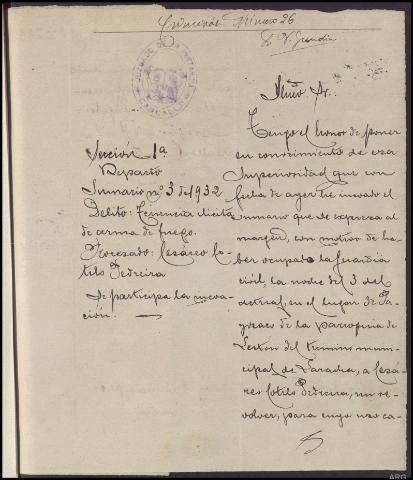 Principal Número 26
Iltmo Sr.
Sección 1ª
Reparto
Sumario nº 3 de 1932
Delito: Tenencia ilícita
de arma de fuego.
Procesado: Cesáreo Co-
telo Pedreira
Se participa la incoa-
ción.
Tengo el honor de poner
en conocimiento de esa
Superioridad que con
fecha de ayer he incoado el
sumario que se expresa al
margen, con motivo de ha-
ber ocupado la Guardia
civil, la noche del 3 del
actual, en el lugar de
de la parroquia de
Lestón del término muni-
cipal de Laracha, a Cesá-
reo Cotelo Pedreira, un re-
volver, para cuyo uso ca-
ARG